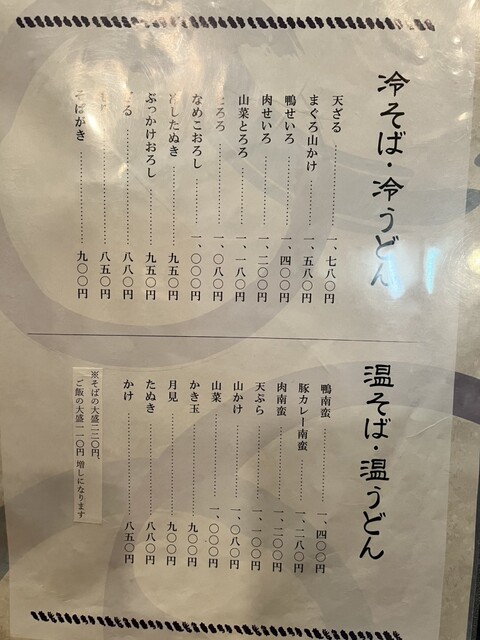 冷そば・冷うどん
天ざる 一、七八〇円
まぐろ山かけ 一、五八〇円
鴨せいろ 一、四〇〇円
肉せいろ 一、二〇〇円
山菜とろろ 一、一八〇円
とろろ 一、〇八〇円
なめこおろし 一、〇〇〇円
冷したぬき 九五〇円
ぶっかけおろし 九五〇円
ざる 八八〇円
八五〇円
そばがき 九〇〇円
温そば・温うどん
鴨南蛮 一、四〇〇円
豚カレー南蛮 一、二八〇円
肉南蛮 一、二〇〇円
天ぷら 一、一〇〇円
山かけ 一、〇八〇円
山菜 一、〇〇〇円
かき玉 九〇〇円
月見 九〇〇円
たぬき 八八〇円
かけ 八五〇円
※そばの大盛二二〇円、
ご飯の大盛一一〇円 増しになります